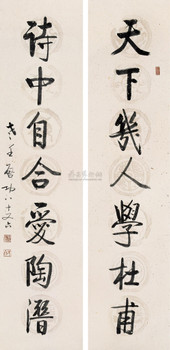 天下幾人學杜甫
詩中自合愛陶潛
啓功八十又六